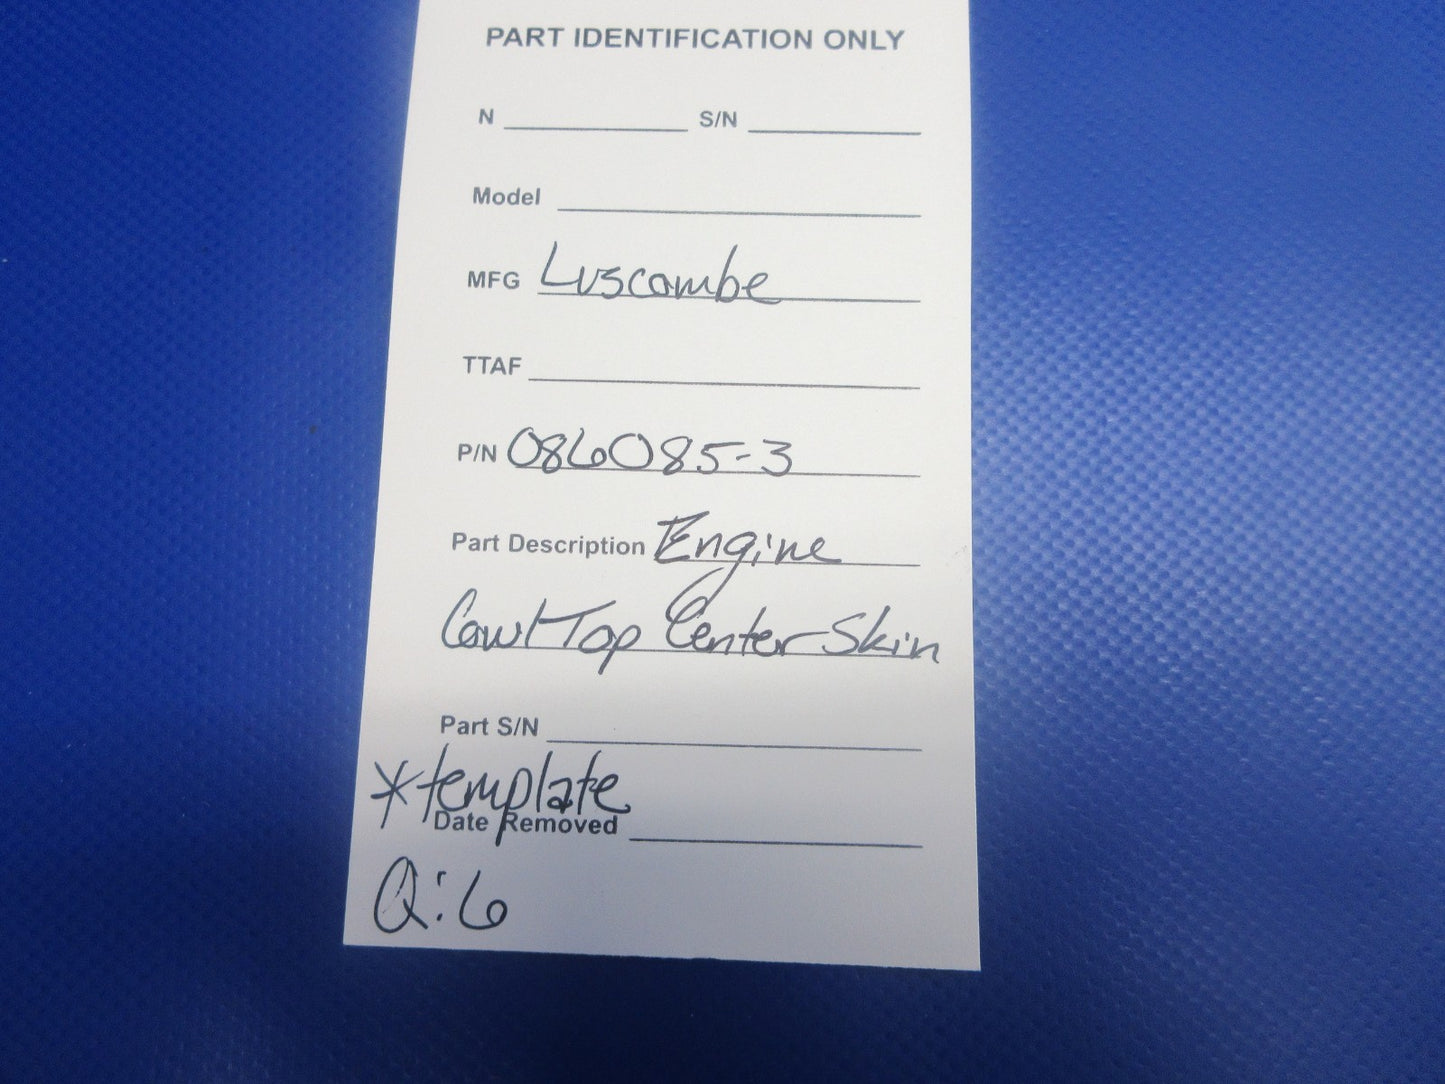 PART IDENTIFICATION ONLY
N S/N
Model
MFG Luscombe
TTAF
P/N 086085-3
Part Description Engine
Cowl Top Center Skin
Part S/N
*template
Date Removed
Q:6